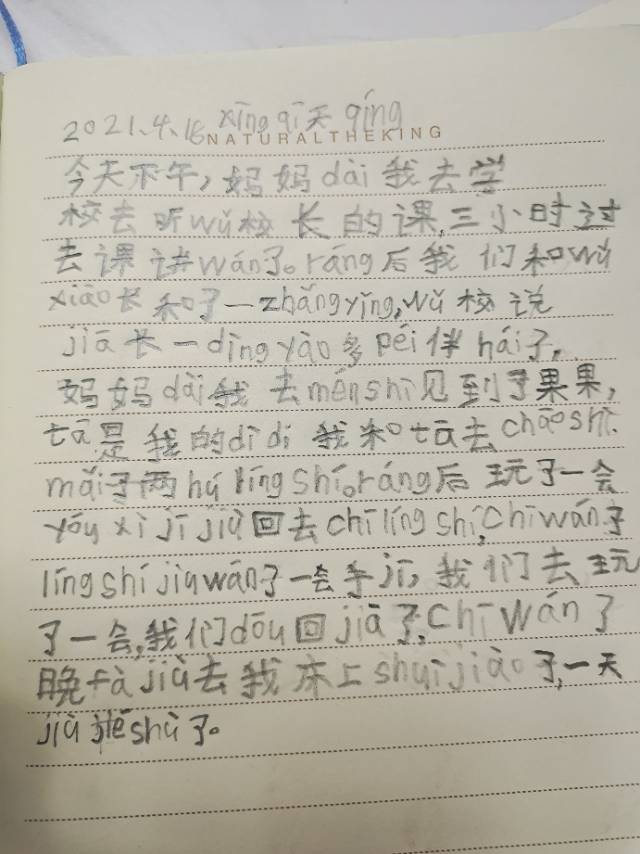 2021.4.18 xīng qī天 qíng
NATURALTHEKING
今天下午,妈妈dài我去学
校去听wǔ校长的课,三小时过
去课讲wán了。ráng后我们和wǔ
xiào长和了一zhāngyǐng,wǔ校说
jiā长一dìngyào多péi伴hái子,
妈妈dài我去ménshì见到了果果,
tā是我的dìdi我和tā去chāoshì.
mǎi了两hú língshí。ráng后玩了一会
yóu xì jī jiù回去chīlíngshí,chīwán了
língshíjiùwán了一会手jī,我们去玩
了一会,我们dōu回jiā了,chī wán了
晚fàjiù去我床上shuìjiào了,一天
jiù jiéshù了。